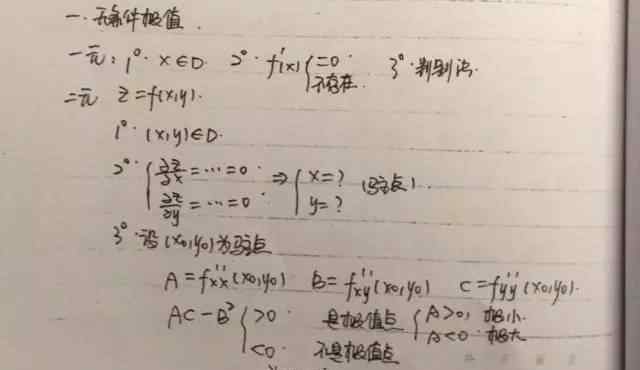 一. 无条件极值.
一元: 1° x∈D. 2° f'(x) { =0 不存在. 3° 判别法.
二元 z=f(x,y).
1° (x,y)∈D.
2° { ∂z/∂x=…=0 ∂z/∂y=…=0 ⇒ { x=? y=? (驻点).
3° 设(x₀,y₀)为驻点
A=f''xx(x₀,y₀) B=f''xy(x₀,y₀) C=f''yy(x₀,y₀).
AC-B² { >0. 是极值点 { A>0, 极小. A<0. 极大
<0. 不是极值点